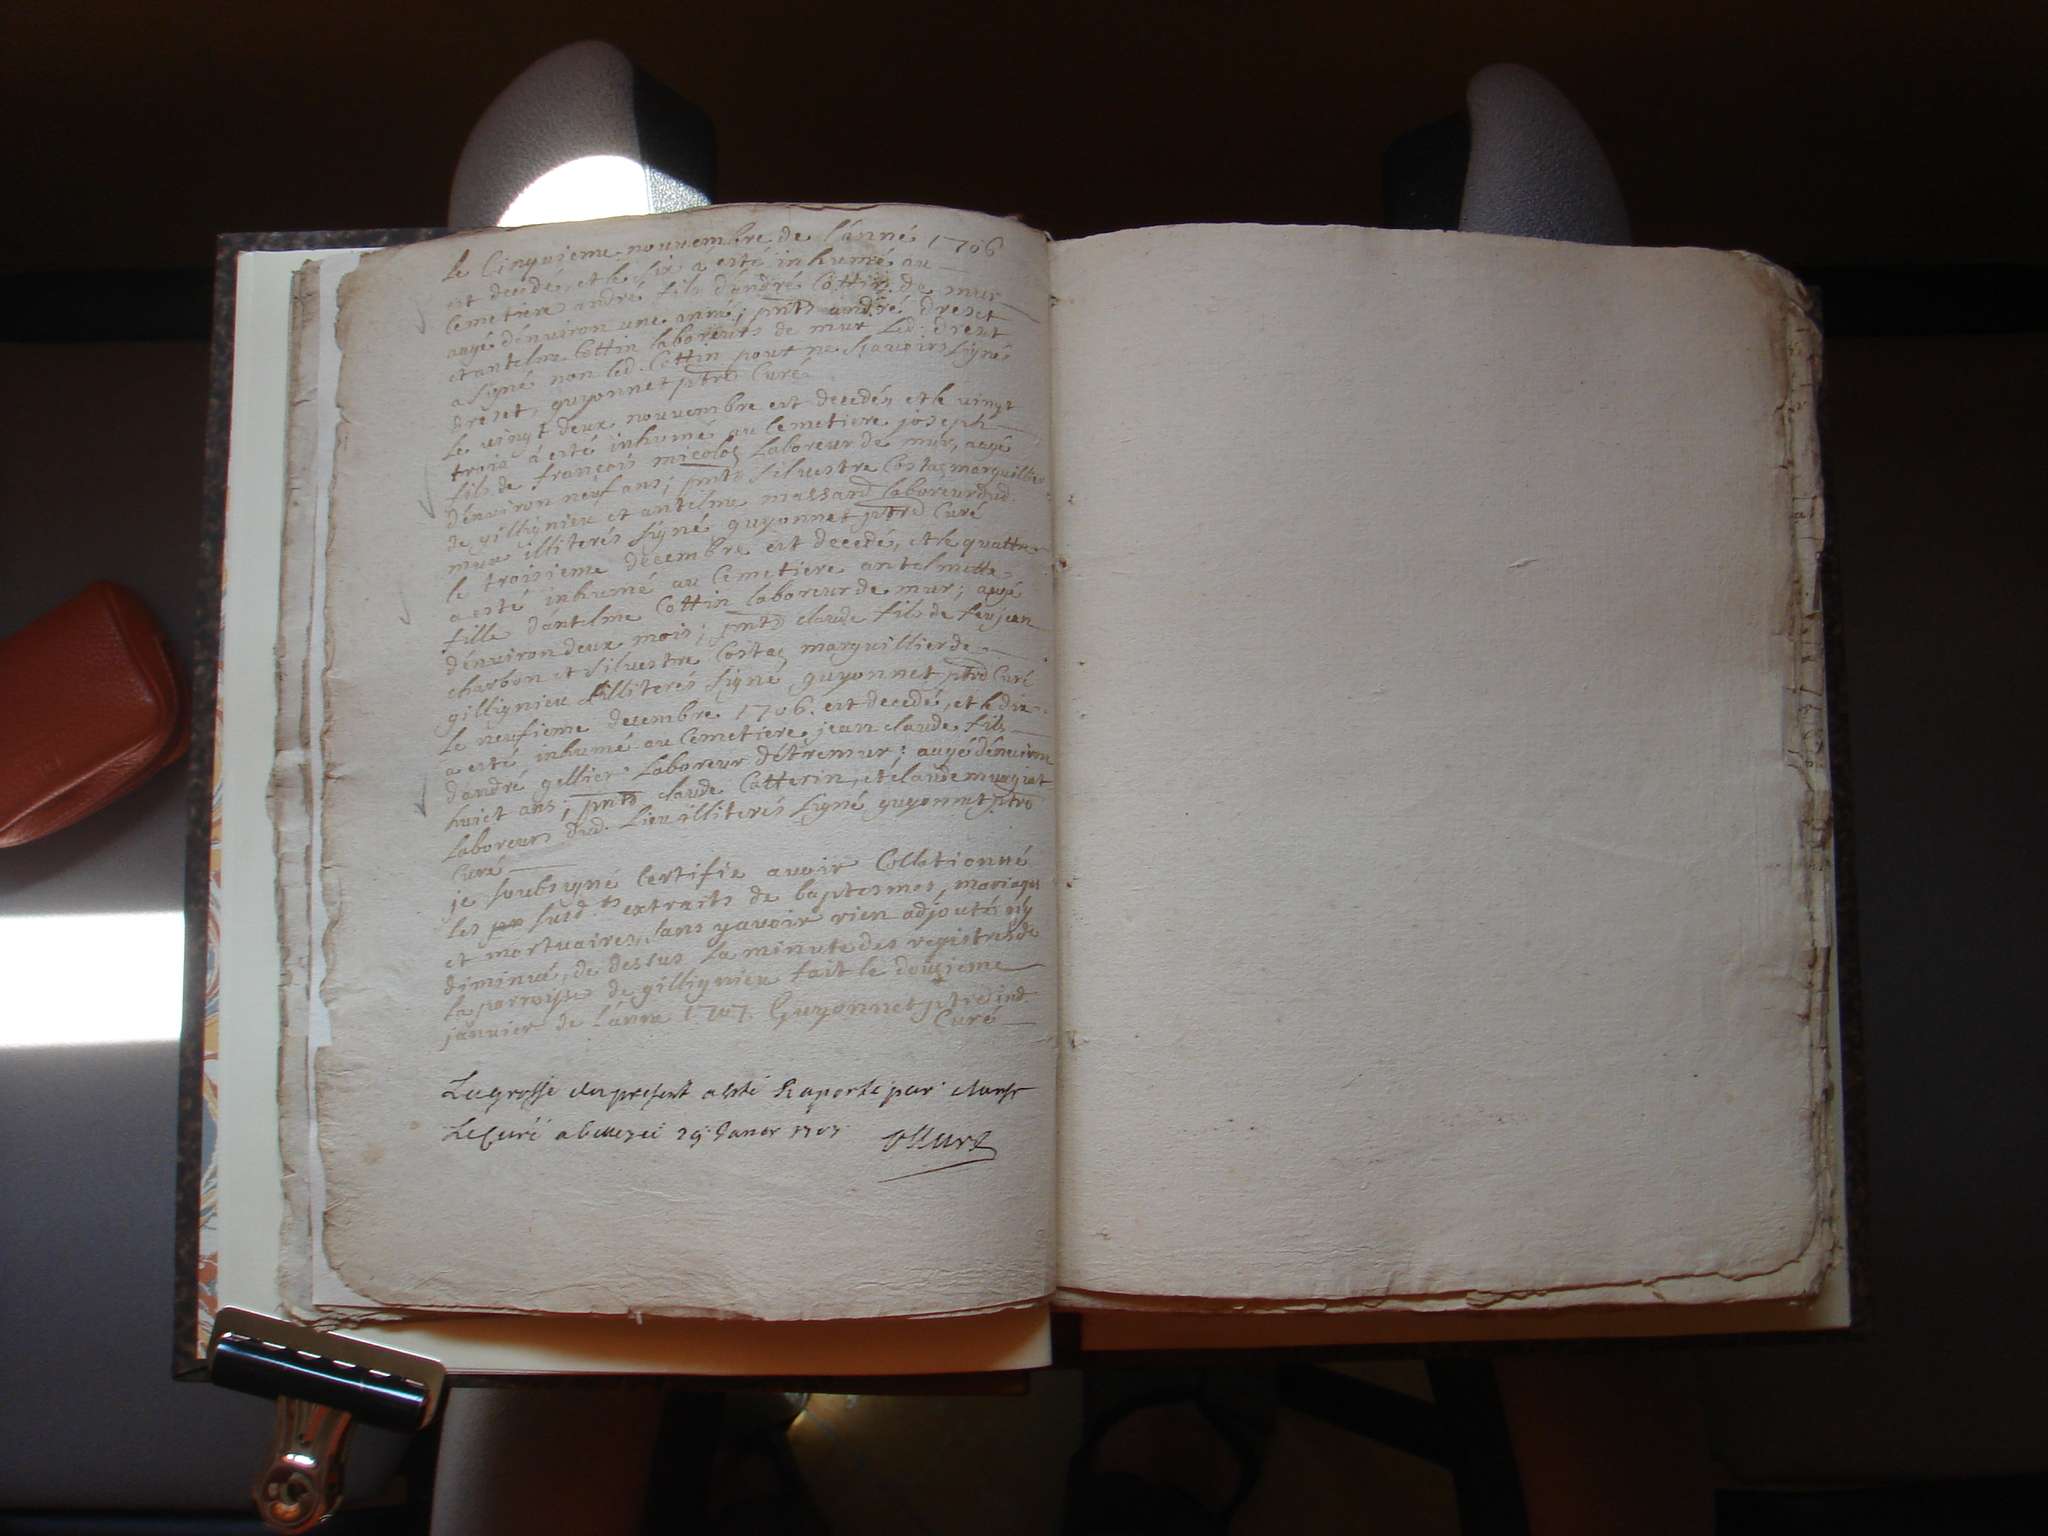 le Cinquieme nouuembre de l'ánné 1706
est decedé, et le six a esté inhumé au
Cemetiere andré fils d'ándré Cottin de mur
augé dénuiron une anné; pnts andré dreset
et antelme Cottin laboreurs de mur led: dreset
a signé non led. Cottin pour ne scauoir signés
dreset, guyonnet ptre Curé
Le uingt deux nouuembre est decedé, et le uingt
trois á esté inhumé au Cemetiere joseph
fils de françois micoloz Laboreur de mur, augé
dénuiron neuf ans; pnts siluestre Costaz marguillier
de gillignieu et antelme massard laboreur dud.
mur illiterés signé guyonnet ptre Curé
le troisieme decembre est decedé, et le quattre
a esté inhumé au Cemetiere antelmette
fille d'antelme Cottin laboreur de mur; augé
dénuiron deux mois; pnts claude fils de feu jean
charbon et siluestre Costaz marguillier de
gillignieu illiterés signé guyonnet ptre Curé
Le neufieme decembre 1706. est decedé, et le dix
a esté inhumé au Cemetiere jean claude fils
d'andré gellier Laboreur d'étremur; augé dénuiron
huict ans; pnts claude Cotterin, et claude mugnet
Laboreurs dud. Lieu illiterés signé guyonnet ptre
Curé
je soubsigné Certifie auoir Collationné
les susd.ts extraits de baptesmes, mariages
et mortuaires, sans y auoir rien adjouté n'y
diminué, de dessus La minute des registres de
La parroisse de gillignieu fait le douzieme
januier de l'ánné 1707. Guyonnet ptre ind
Curé
La grosse du present a esté Raporté par
Le Curé a belley ce 29 Januer 1707